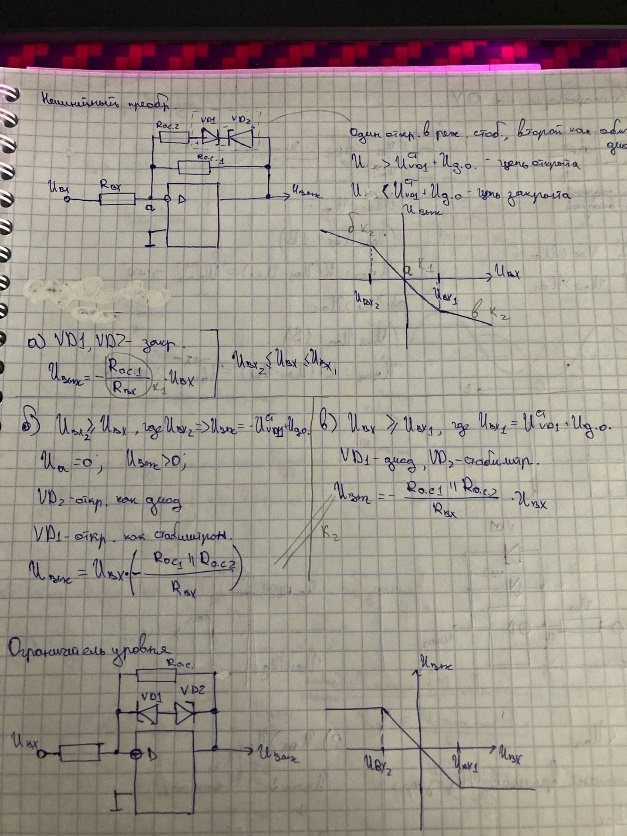 Нелинейный преобр.
Rо.с.2 VD1 VD2
Rо.с.1
Uвх Rвх
a
D
Uвых
Один откр. в реж. стаб., второй как
U > UстVD1 + Uд.о. - цепь открыта
U < UстVD1 + Uд.о - цепь закрыта
Uвых
б K2
а K1
Uвх
Uвх2 Uвх1
в K2
а) VD1, VD2 - закр.
Uвых = - Rос.1 / Rвх K1 · Uвх
Uвх2 ≤ Uвх ≤ Uвх1
б) Uвх2 ≥ Uвх, где Uвх2 => Uвых = -UстVD1 - Uд.о.
Uа = 0; Uвых > 0;
VD2 - откр. как диод
VD1 - откр. как стабилитрон.
Uвых = Uвх · (- Rос1 || Rо.с2 / Rвх)
в) Uвх ≥ Uвх1, где Uвх1 = UстVD1 + Uд.о.
VD1 - диод, VD2 - стабилитр.
Uвых = - Rо.с1 || Rо.с2 / Rвх · Uвх
K2
Ограничитель уровня
Rо.с.
VD1 VD2
Uвх
D
Uвых
Uвых
Uвх
Uвх2 Uвх1